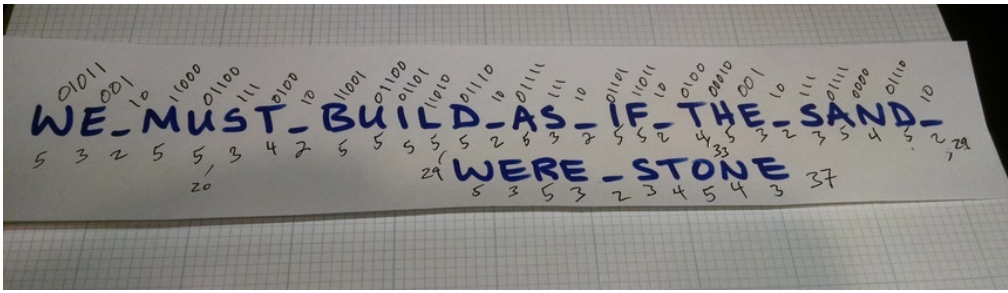 01011 001 10 11000 01100 111 0100 10 11001 01100 01101 11010 01110 10 01111 111 10 01101 11011 10 0100 00010 001 10 111 01111 0000 01110 10
WE_MUST_BUILD_AS_IF_THE_SAND_
5 3 2 5 5, 3 4 2 5 5 5 5, 5 2 5 3 2 5 5 2 4 5 3 2 3 5 4 5 2, 29
20 29 33
WERE_STONE 37
5 3 5 3 2 3 4 5 4 3